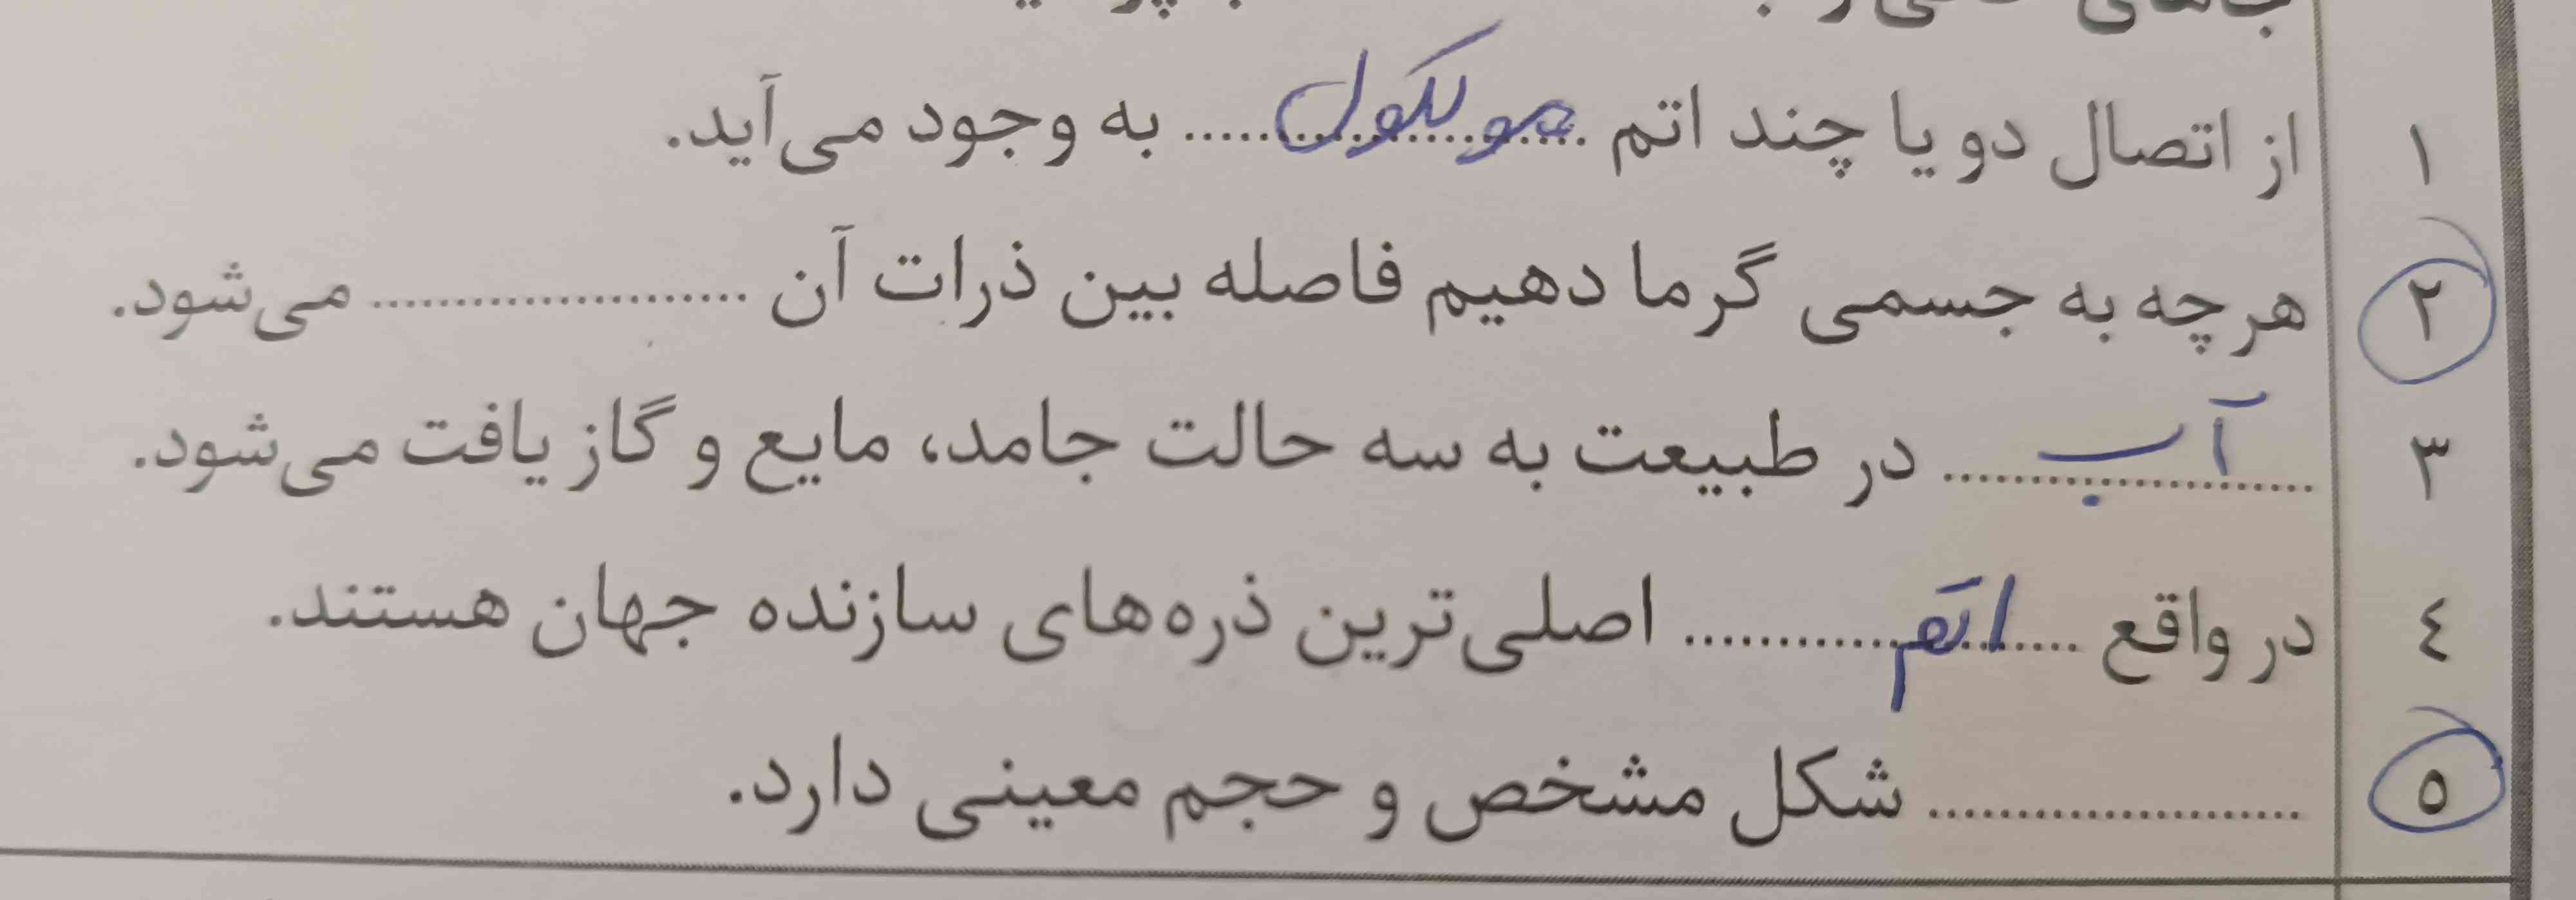 ۱ از اتصال دو یا چند اتم ..... مولکول ..... به وجود می‌آید.
۲ هر چه به جسمی گرما دهیم فاصله بین ذرات آن ..................... می‌شود.
۳ ..... آب ..... در طبیعت به سه حالت جامد، مایع و گاز یافت می‌شود.
٤ در واقع ..... اتم ..... اصلی‌ترین ذره‌های سازنده جهان هستند.
۵ ..................... شکل مشخص و حجم معینی دارد.